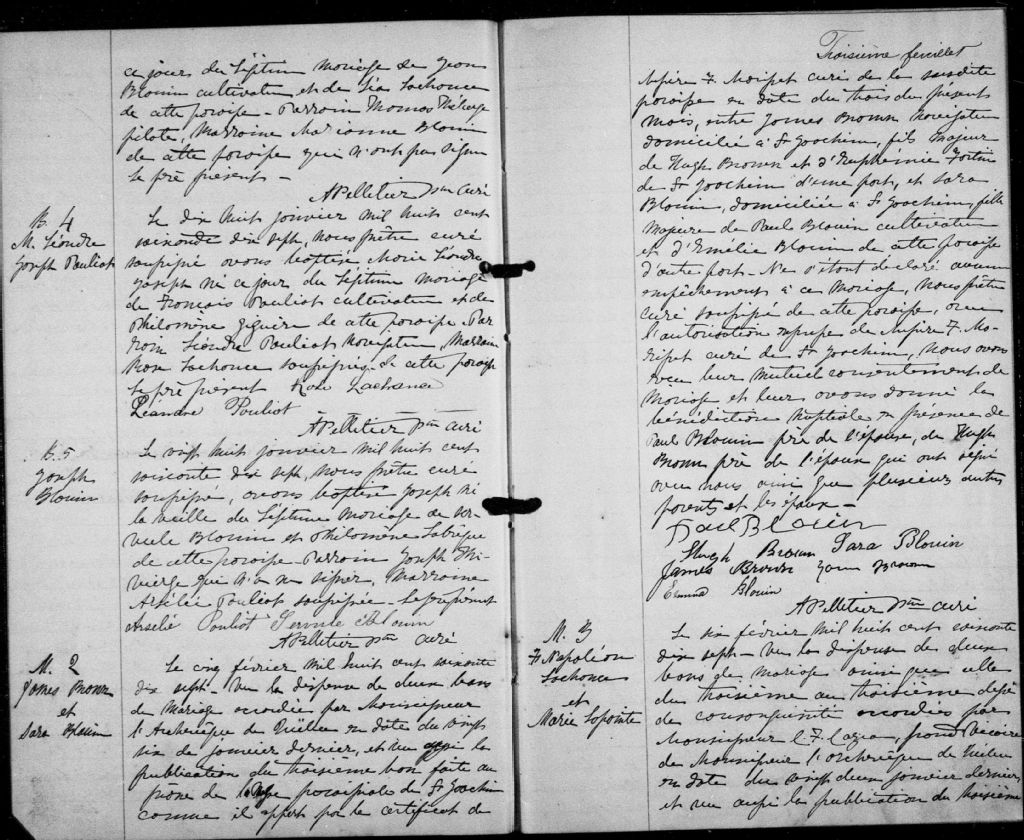 ce jour du légitime mariage de Jean
Blouin cultivateur et de Léa Lachance
de cette paroisse - Parrain Thomas Théberge
pilote, Marraine Marianne Blouin
de cette paroisse qui n'ont pas signé
le père présent -
A Pelletier ptre curé
B. 4
M. Léondre
Joseph Pouliot
Le dix huit janvier mil huit cent
soixante dix sept, nous prêtre curé
soussigné avons baptisé Marie Léondre
Joseph né ce jour du légitime mariage
de Francois Pouliot cultivateur et de
Philomène Giguère de cette paroisse. Par
rain Léondre Pouliot navigateur, Marraine
Rose Lachance soussignés. de cette paroisse
le père présent Rose Lachance
Léandre Pouliot
A Pelletier ptre curé
B. 5
Joseph
Blouin
Le vingt huit janvier mil huit cent
soixante dix sept, nous prêtre curé
soussigné, avons baptisé Joseph né
la veille du légitime mariage de Ser-
vule Blouin et Philomène Labrèque
de cette paroisse - Parrain Joseph Thi-
vierge qui n'a su signer, Marraine
Arsélie Pouliot soussignée - Le père présent
Arsélie Pouliot Servule Blouin
A Pelletier ptre curé
M. 2
James Brown
et
Sara Blouin
Le cinq février mil huit cent soixante
dix sept - vu la dispense de deux bans
de mariage accordée par Monseigneur
l'Archevêque de Québec en date du vingt
six de janvier dernier, et vu aussi la
publication du troisième ban faite au
prône de la paroissiale de St Joachim
comme il appert par le certificat de
Troisième feuillet
Messire F. Morisset curé de la susdite
paroisse en date du trois du présent
mois, entre James Brown navigateur
domicilié à St Joachim, fils majeur
de Hugh Brown et d'Euphémie Fortin
de St Joachim d'une part, et Sara
Blouin, domiciliée à St Joachim, fille
majeure de Paul Blouin cultivateur
et d'Emélie Blouin de cette paroisse
d'autre part - Ne s'étant déclaré aucun
empêchement à ce mariage, Nous prêtre
curé soussigné de cette paroisse, avec
l'autorisation expresse de Messire F. Mo-
risset curé de St Joachim, nous avons
recu leur mutuel consentement de
mariage et leur avons donné la
bénédiction nuptiale en présence de
Paul Blouin père de l'épouse, de Hugh
Brown père de l'époux qui ont signé
avec nous ainsi que plusieurs autres
parents et les époux -
Paul Blouin
Hugh Brown Sara Blouin
James Brown John Brown
Emma Blouin
A Pelletier ptre curé
M. 3
F. Napoléon
Lachance
et
Marie Lapointe
Le six février mil huit cent soixante
dix sept - vu la dispense de deux
bans de mariage ainsi que celle
du troisième au troisième degré
de consanguinité accordées par
Monsieur C. F. Cazeau, grand Vicaire
de Monseigneur l'archevêque de Québec
en date du vingt deux janvier dernier,
et vu aussi la publication du troisième